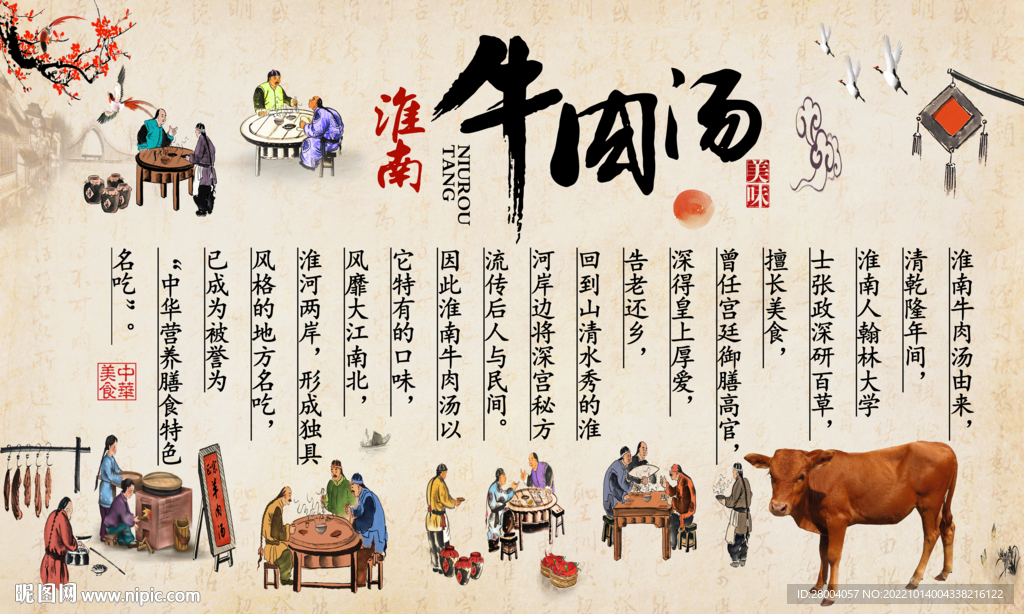 淮南
牛肉汤
NIUROU
TANG
美味
淮南牛肉汤由来，
清乾隆年间，
淮南人翰林大学
士张政深研百草，
擅长美食，
曾任宫廷御膳高官，
深得皇上厚爱，
告老还乡，
回到山清水秀的淮
河岸边将深宫秘方
流传后人与民间。
因此淮南牛肉汤以
它特有的口味，
风靡大江南北，
淮河两岸，形成独具
风格的地方名吃，
已成为被誉为
“中华营养膳食特色
名吃”。
中華
美食
昵图网 www.nipic.com
ID:28004057 NO:20221014004338216122